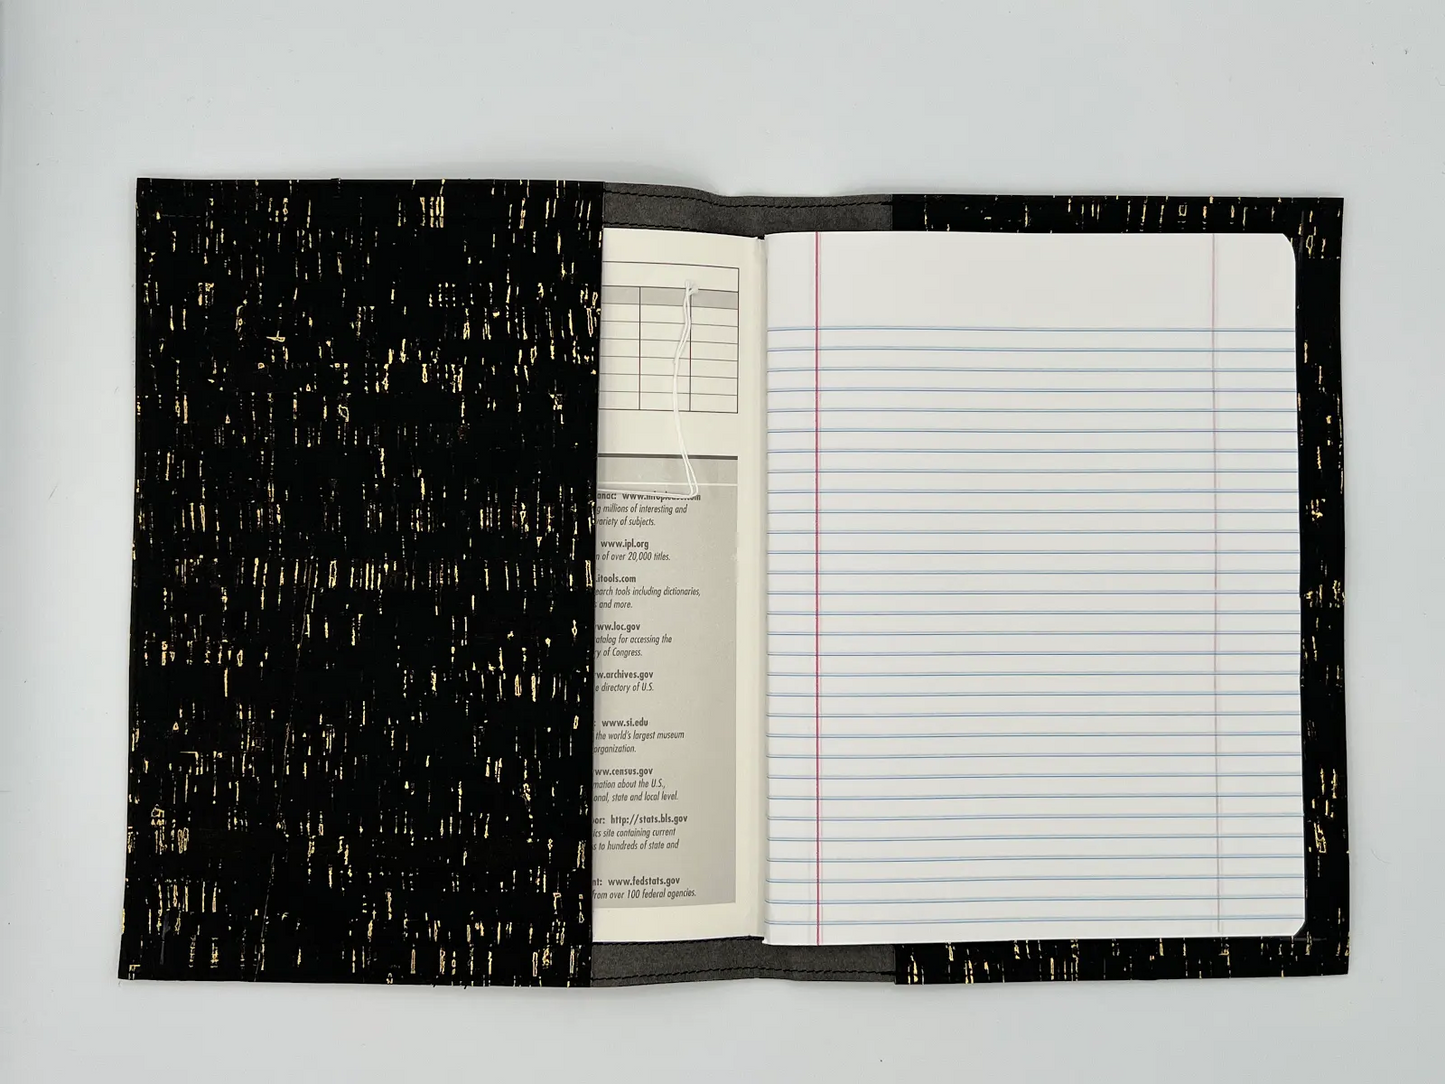 www.infoplease.com
g millions of interesting and
variety of subjects.
www.ipl.org
n of over 20,000 titles.
.itools.com
earch tools including dictionaries,
s and more.
www.loc.gov
atalog for accessing the
ry of Congress.
w.archives.gov
e directory of U.S.
: www.si.edu
the world's largest museum
organization.
www.census.gov
mation about the U.S.,
onal, state and local level.
bor: http://stats.bls.gov
ics site containing current
s to hundreds of state and
nt: www.fedstats.gov
from over 100 federal agencies.